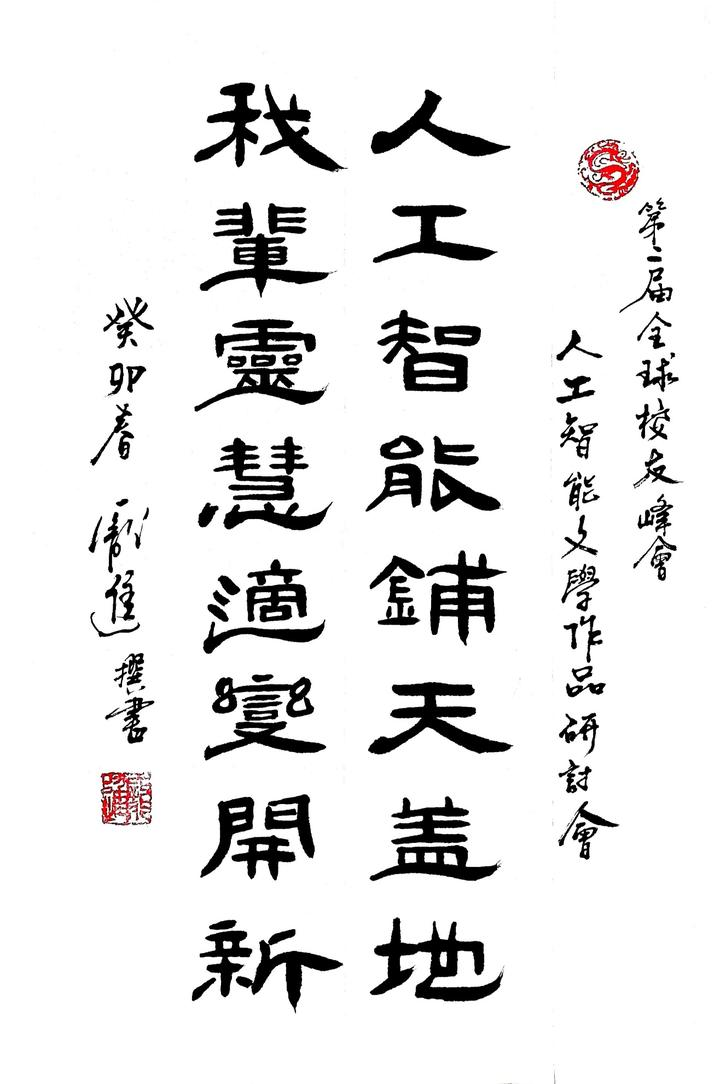 第二届全球校友峰會
人工智能文學作品研討會
人工智能鋪天盖地
我輩靈慧適變開新
癸卯春 撰書